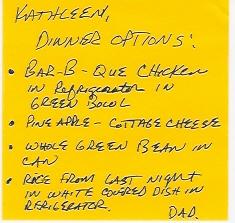 KATHLEEN,
DINNER OPTIONS:
• BAR-B-QUE CHICKEN
IN REFRIGERATOR IN
GREEN BOWL
• PINEAPPLE - COTTAGE CHEESE
• WHOLE GREEN BEAN IN
CAN
• RICE FROM LAST NIGHT
IN WHITE COVERED DISH IN
REFRIGERATOR.
DAD